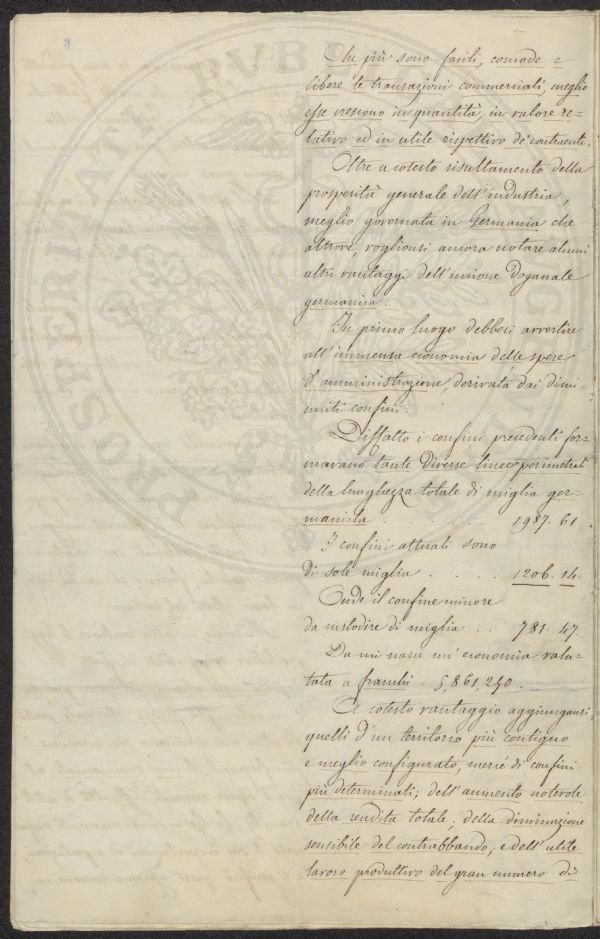 Che più sono facili, comode e
libere le transazioni commerciali, meglio
esse crescono in quantità, in valore re=
lativo ed in utile rispettivo de' contraenti.
Oltre a cotesto risultamento della
prosperità generale dell'industria,
meglio governata in Germania che
altrove, vogliansi ancora notare alcuni
altri vantaggi dell'unione Doganale
germanica.
In primo luogo debbesi avvertire
all'immensa economia delle spese
d'amministrazione, derivata dai dimi=
nuiti confini.
Diffatto i confini precedenti for=
mavano tante diverse linee perimetrali
della lunghezza totale di miglia ger=
maniche . . . . . 1987. 61.
I confini attuali sono
di sole miglia . . . . 1206. 14.
Onde il confine minore
da custodire di miglia . . 781. 47.
Da cui nasce un'economia valu=
tata a franchi . 5,861,250.
A cotesto vantaggio aggiungansi,
quelli d'un territorio più contiguo
e meglio configurato, mercé di confini
più determinati; dell'aumento notevole
della rendita totale; della diminuzione
sensibile del contrabbando; e dell'utile
lavoro produttivo del gran numero di